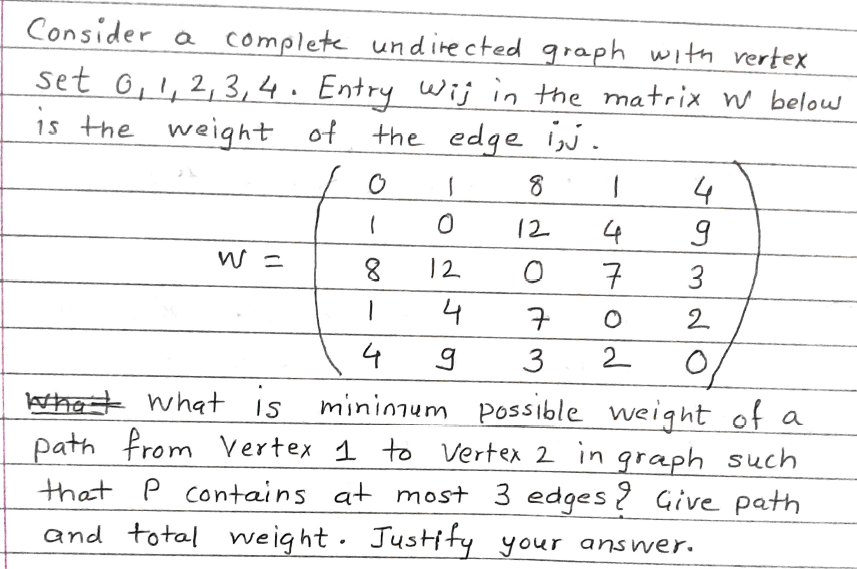 Consider a complete undirected graph with vertex
set 0, 1, 2, 3, 4. Entry Wij in the matrix W below
is the weight of the edge i,j.
0 1 8 1 4
1 0 12 4 9
W = 8 12 0 7 3
1 4 7 0 2
4 9 3 2 0
What What is minimum possible weight of a
path from Vertex 1 to Vertex 2 in graph such
that P contains at most 3 edges? Give path
and total weight. Justify your answer.